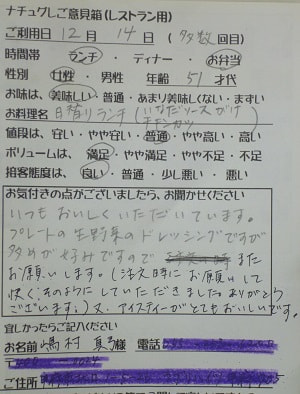 ナチュグしご意見箱(レストラン用)
ご利用日 12月 14日 (多数回目)
時間帯 ランチ・ディナー・お弁当
性別 女性・男性 年齢 51才代
お味は、美味しい・普通・あまり美味しくない・まずい
お料理名 日替りランチ(
チキンカツ
値段は、安い・やや安い・普通・やや高い・高い
ボリュームは、満足・やや満足・やや不足・不足
接客態度は、良い・普通・少し悪い・悪い
お気付きの点がございましたら、お聞かせください
いつもおいしくいただいています。
プレートの生野菜のドレッシングですが
多めが好みですので また
お願いします。(注文時にお願いして
快くそのようにしていただきました。ありがとう
ございます。)又、アイスティーがとてもおいしいです。
宜しかったらご記入ください
お名前 嶋村 様 電話
ご住所